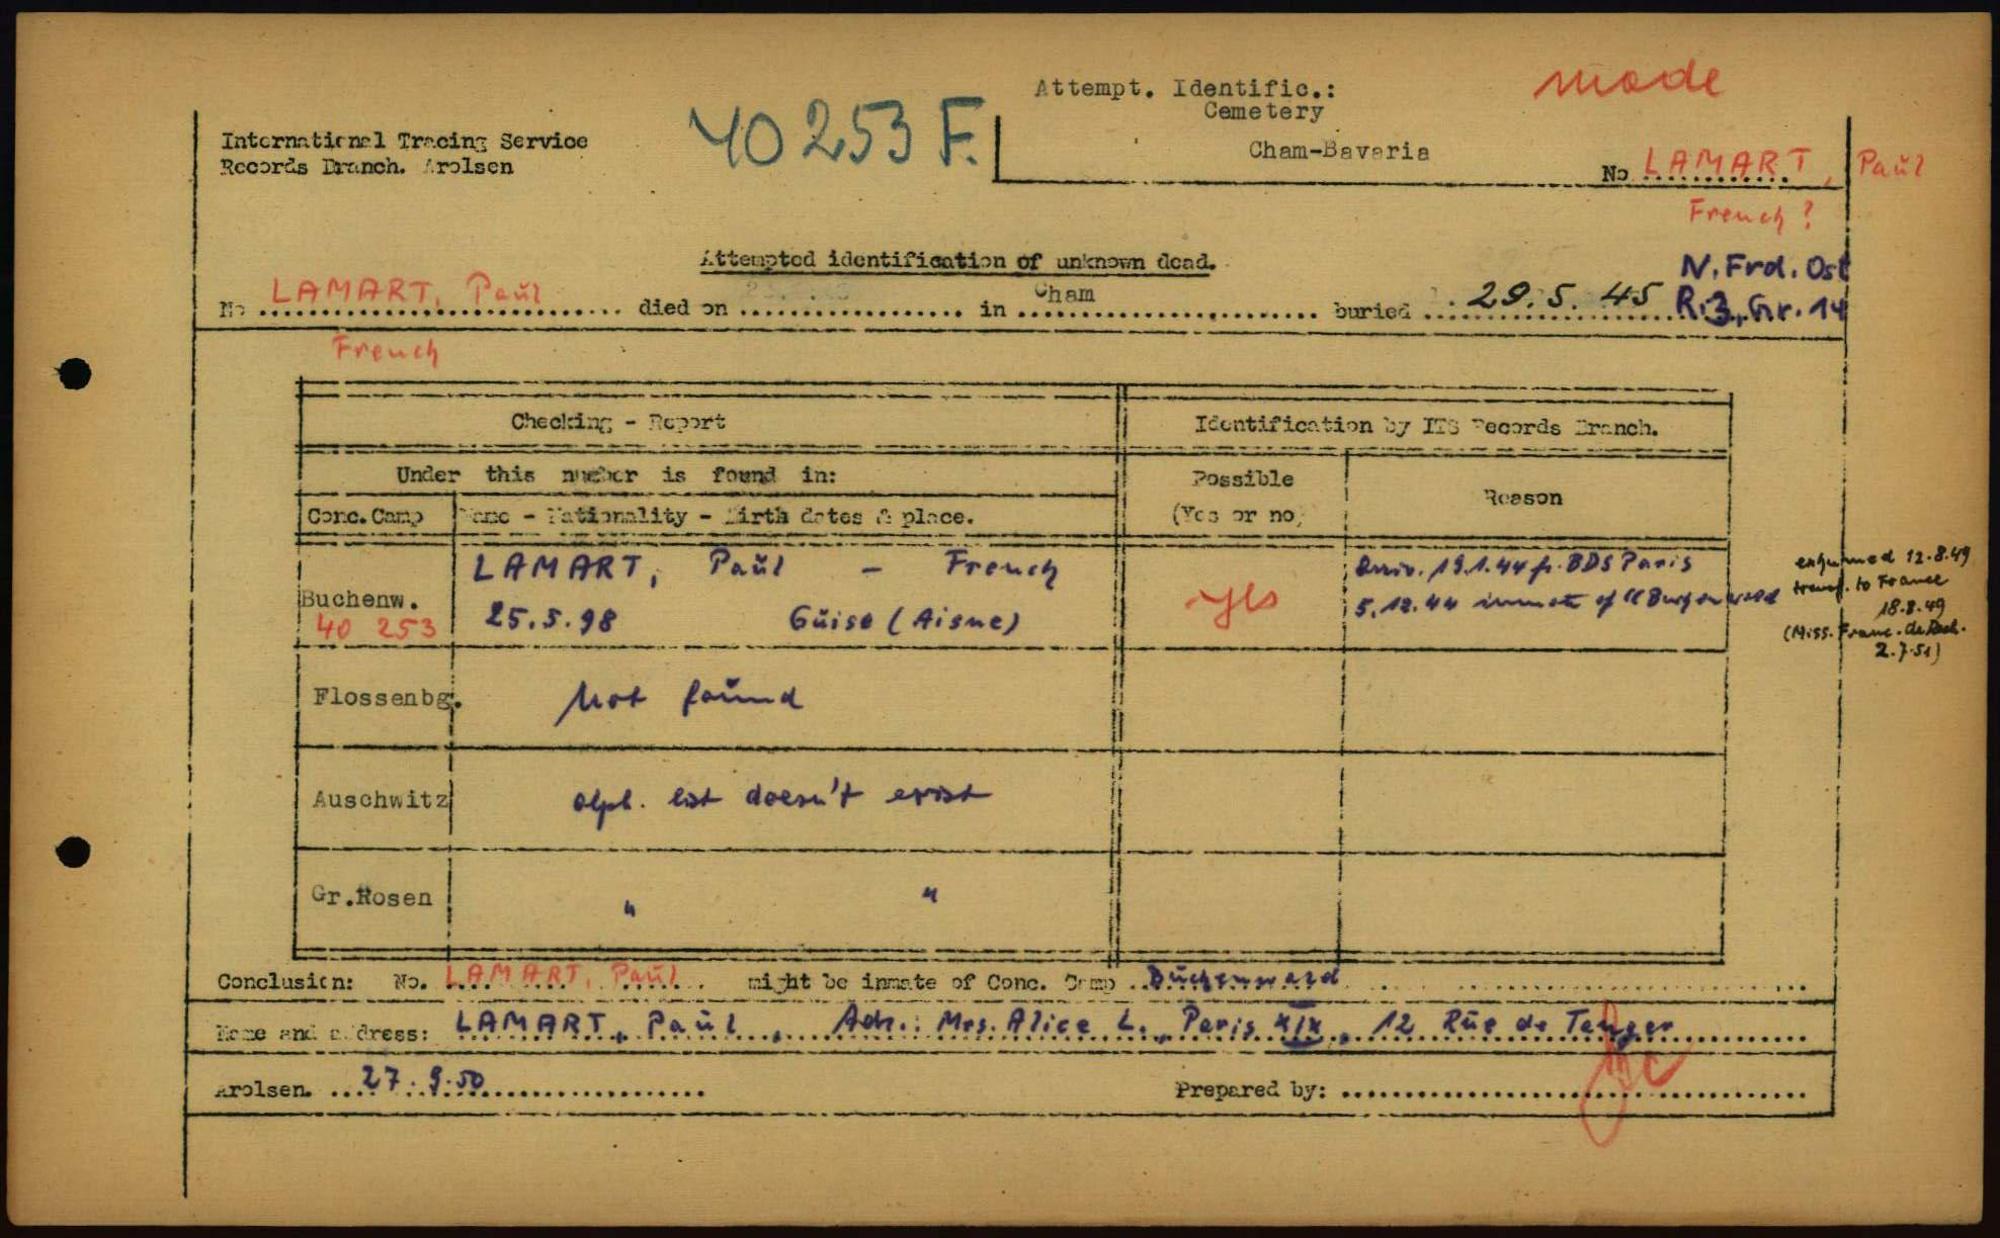 Attempt. Identific.:
mode
Cemetery
40 253 F.
International Tracing Service
Cham-Bavaria
Records Branch. Arolsen
No LAMART, Paul
French ?
Attempted identification of unknown dead.
N. Frd. Ost
No LAMART, Paul died on in Cham buried 29.5.45 R.3, Gr. 14
French
Checking - Report
Identification by ITS Records Branch.
Under this number is found in:
Possible
(Yes or no)
Reason
Conc. Camp
Name - Nationality - Birth dates & place.
Buchenw.
40 253
LAMART, Paul - French
25.5.98 Guise (Aisne)
yes
Arriv. 19.1.44 fr. BDS Paris
5.12.44 inmate of CC Buchenwald
exhumed 12.8.49
transf. to France
18.8.49
(Miss. Franc. de Rech.
2.7.51)
Flossenbg.
Not found
Auschwitz
alph. list doesn't exist
Gr.Rosen
" "
Conclusion: No. LAMART, Paul might be inmate of Conc. Camp Buchenwald
Name and address: LAMART, Paul, Adr.: Mrs. Alice L., Paris XIX, 12 Rue de Tanger
Arolsen. 27.9.50
Prepared by: